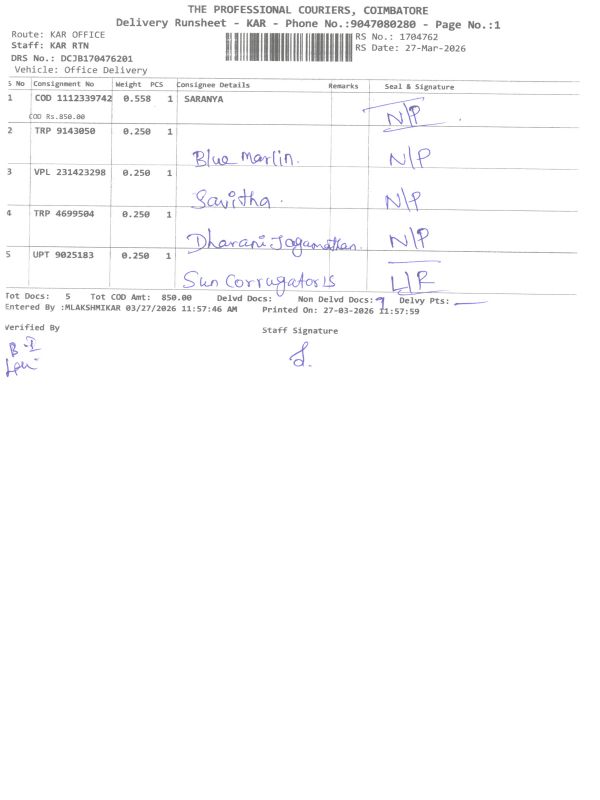 THE PROFESSIONAL COURIERS, COIMBATORE
Delivery Runsheet - KAR - Phone No.:9047080280 - Page No.:1
Route: KAR OFFICE RS No.: 1704762
Staff: KAR RTN RS Date: 27-Mar-2026
DRS No.: DCJB170476201
Vehicle: Office Delivery
S No Consignment No Weight PCS Consignee Details Remarks Seal & Signature
1 COD 1112339742 0.558 1 SARANYA N/P
COD Rs.850.00
2 TRP 9143050 0.250 1
Blue Marlin. N/P
3 VPL 231423298 0.250 1
Savitha. N/P
4 TRP 4699504 0.250 1
Dharani Jaganathan. N/P
5 UPT 9025183 0.250 1
Sun Corrugators L/R
Tot Docs: 5 Tot COD Amt: 850.00 Delvd Docs: Non Delvd Docs: Delvy Pts:
Entered By :MLAKSHMIKAR 03/27/2026 11:57:46 AM Printed On: 27-03-2026 11:57:59
Verified By Staff Signature